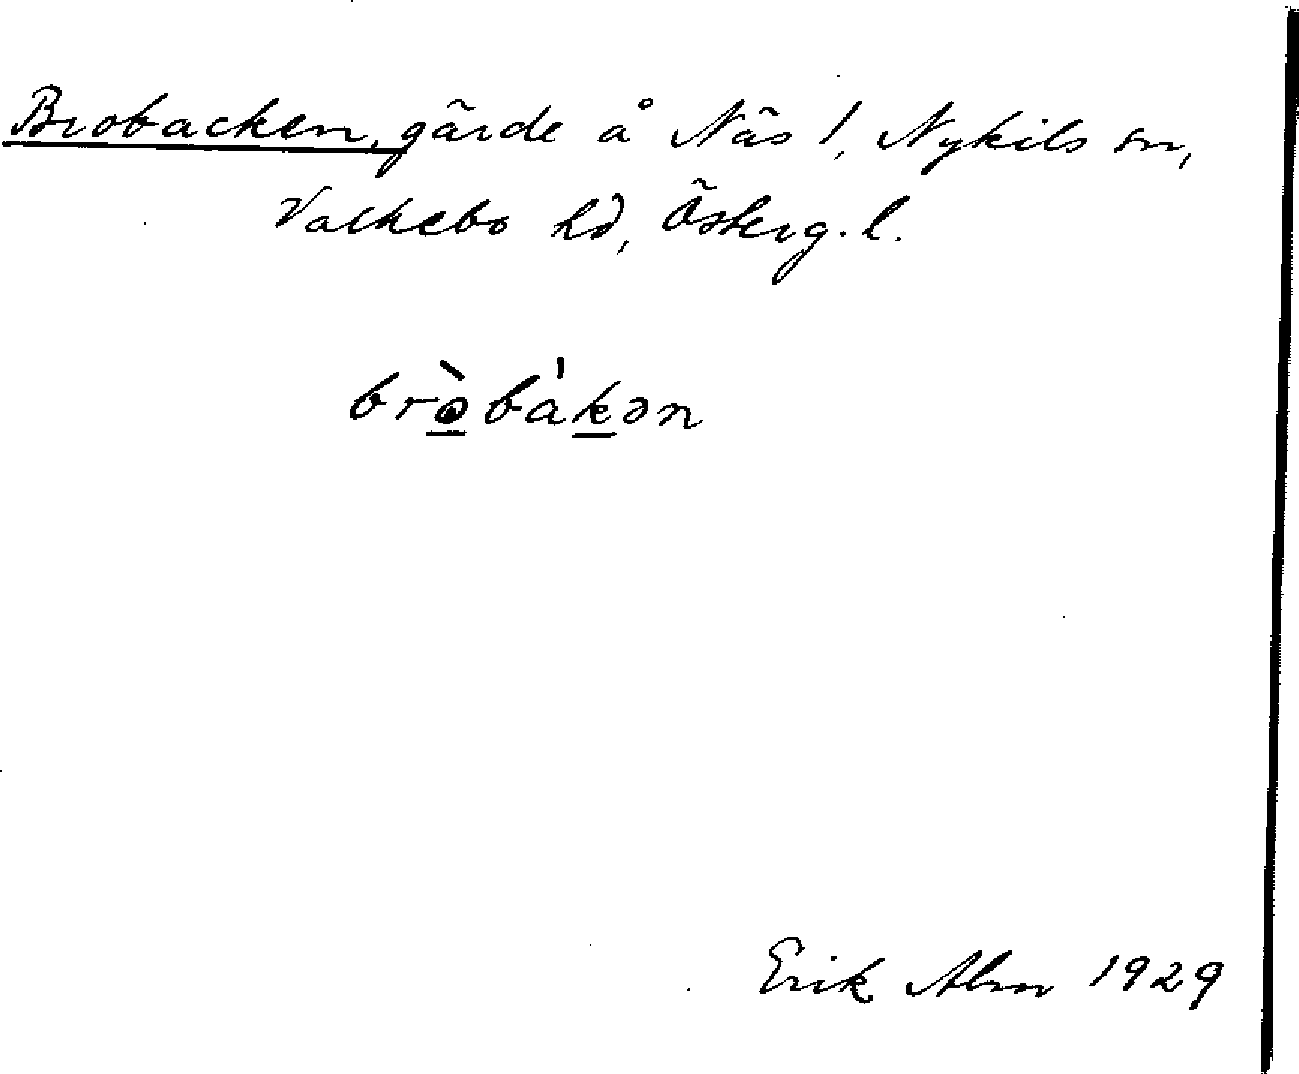 Brobacken, gärde å Näs 1, Nykils sn,
Valkebo hd, Österg. l.
bròbàkən
Erik Alm 1929